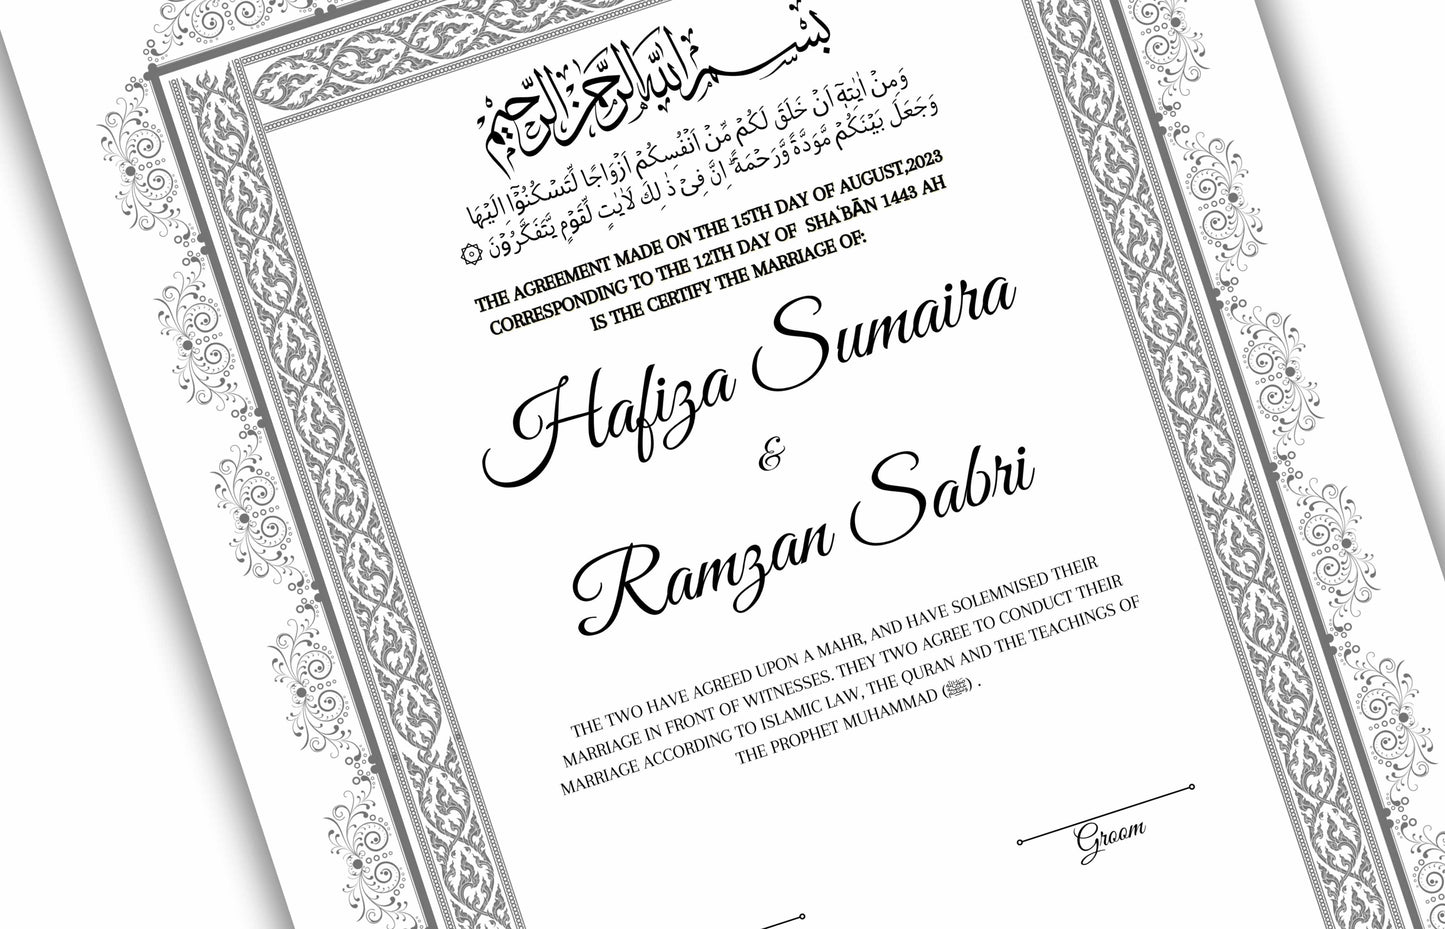 بِسْمِ اللهِ الرَّحْمٰنِ الرَّحِيْمِ
وَمِنْ اٰيٰتِهٖٓ اَنْ خَلَقَ لَكُمْ مِّنْ اَنْفُسِكُمْ اَزْوَاجًا لِّتَسْكُنُوْٓا اِلَيْهَا
وَجَعَلَ بَيْنَكُمْ مَّوَدَّةً وَّرَحْمَةً ؕ اِنَّ فِىْ ذٰ لِكَ لَاٰيٰتٍ لِّقَوْمٍ يَّتَفَكَّرُوْنَ ۞
THE AGREEMENT MADE ON THE 15TH DAY OF AUGUST,2023
CORRESPONDING TO THE 12TH DAY OF SHA'BĀN 1443 AH
IS THE CERTIFY THE MARRIAGE OF:
Hafiza Sumaira
&
Ramzan Sabri
THE TWO HAVE AGREED UPON A MAHR, AND HAVE SOLEMNISED THEIR
MARRIAGE IN FRONT OF WITNESSES. THEY TWO AGREE TO CONDUCT THEIR
MARRIAGE ACCORDING TO ISLAMIC LAW, THE QURAN AND THE TEACHINGS OF
THE PROPHET MUHAMMAD (ﷺ) .
Groom